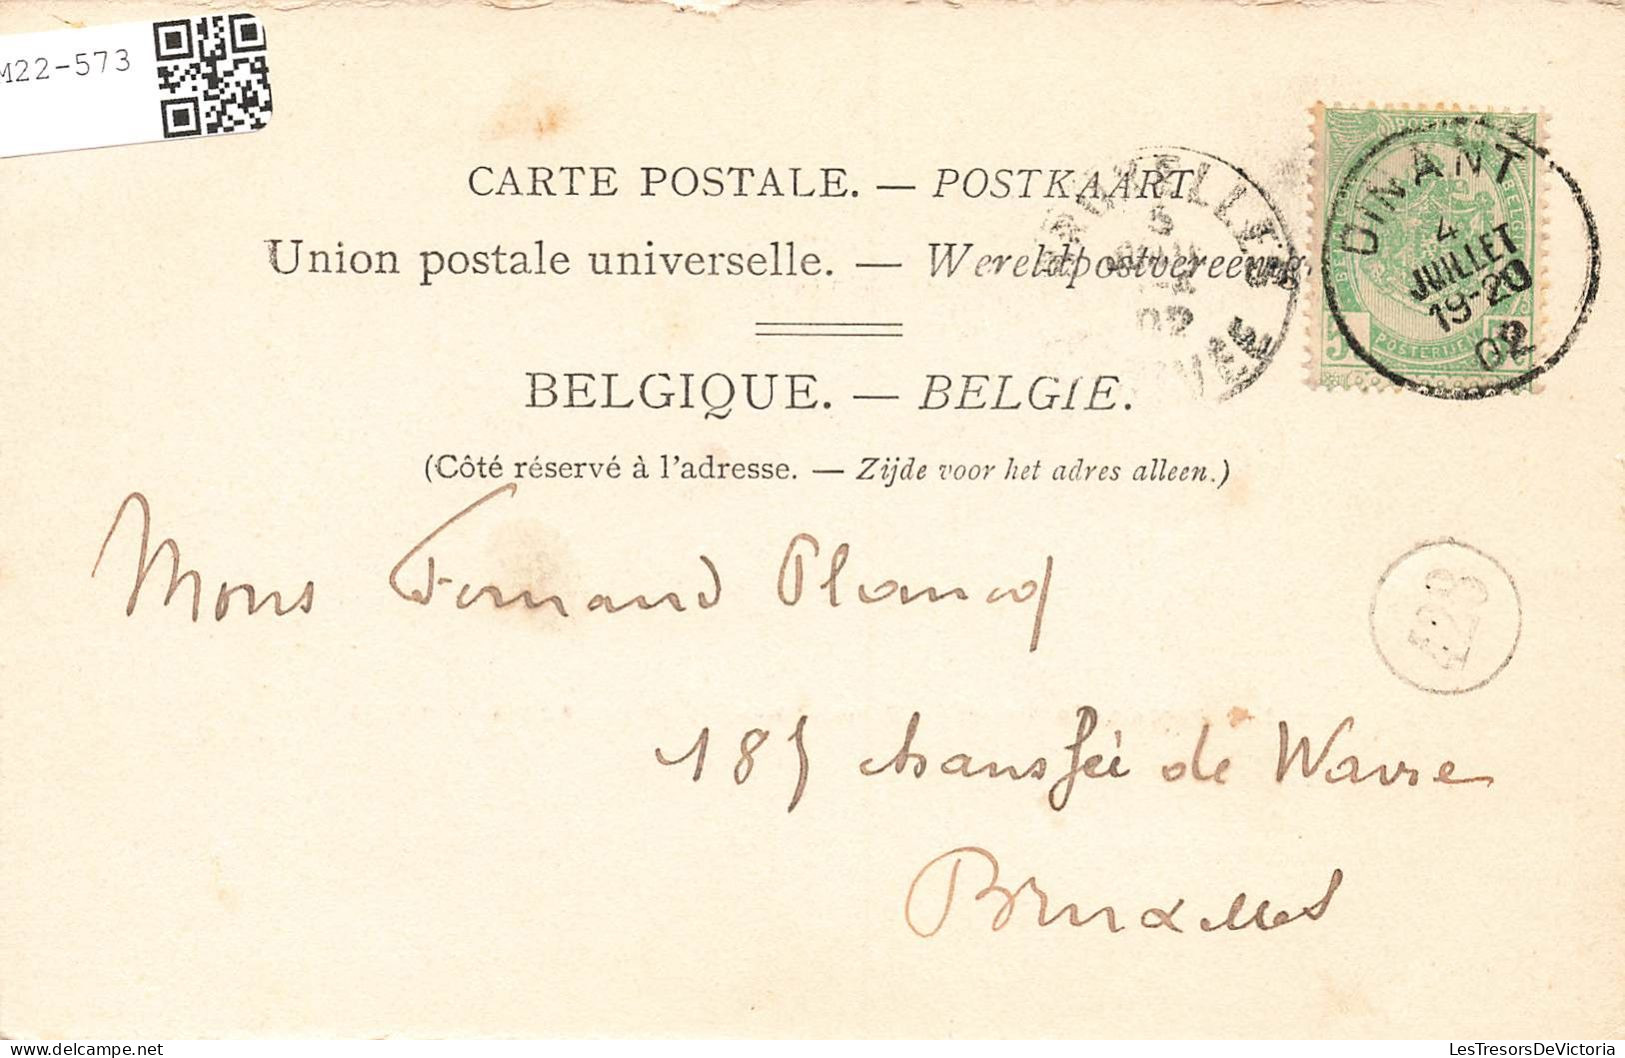 M22-573
CARTE POSTALE. — POSTKAART
Union postale universelle. — Wereldpostvereenig
BELGIQUE. — BELGIE.
(Côté réservé à l'adresse. — Zijde voor het adres alleen.)
DINANT
4
JUILLET
19-20
02
BRUXELLES
5
02
POSTERIJEN
5
Mons Fernand Plancq
185 chaussée de Wavre
Bruxelles
LesTresorsDeVictoria